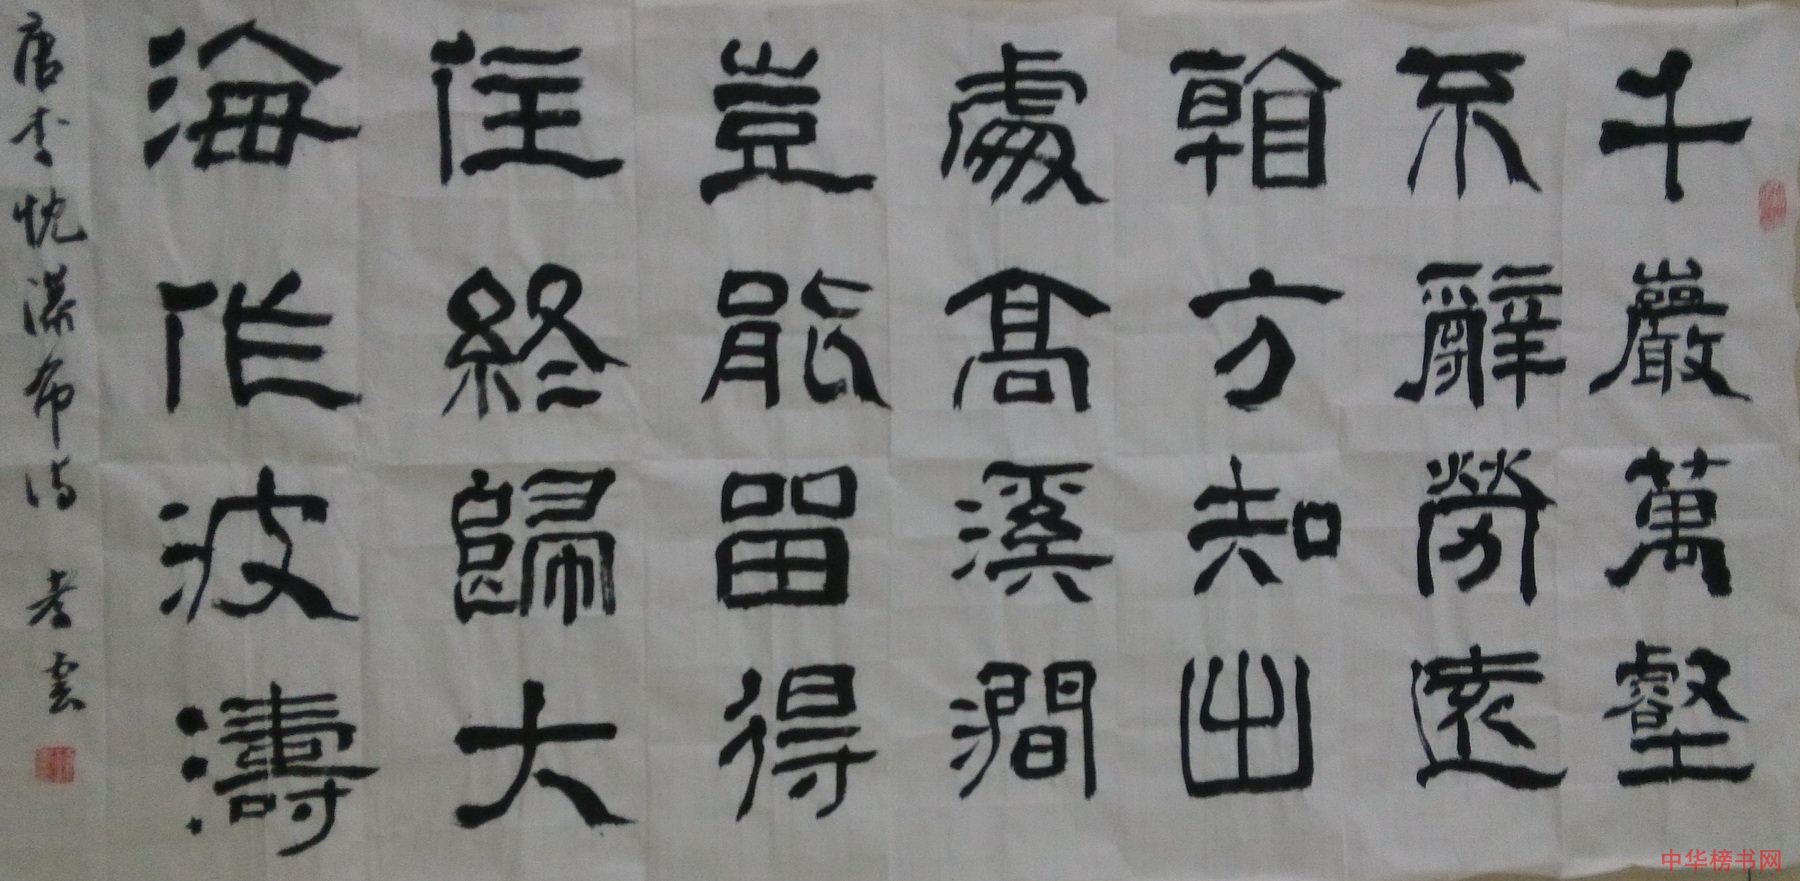 千巖萬壑
不辭勞遠
看方知出
處高溪澗
豈能留得
住終歸大
海作波濤
唐李忱瀑布诗 孝雲
中华榜书网